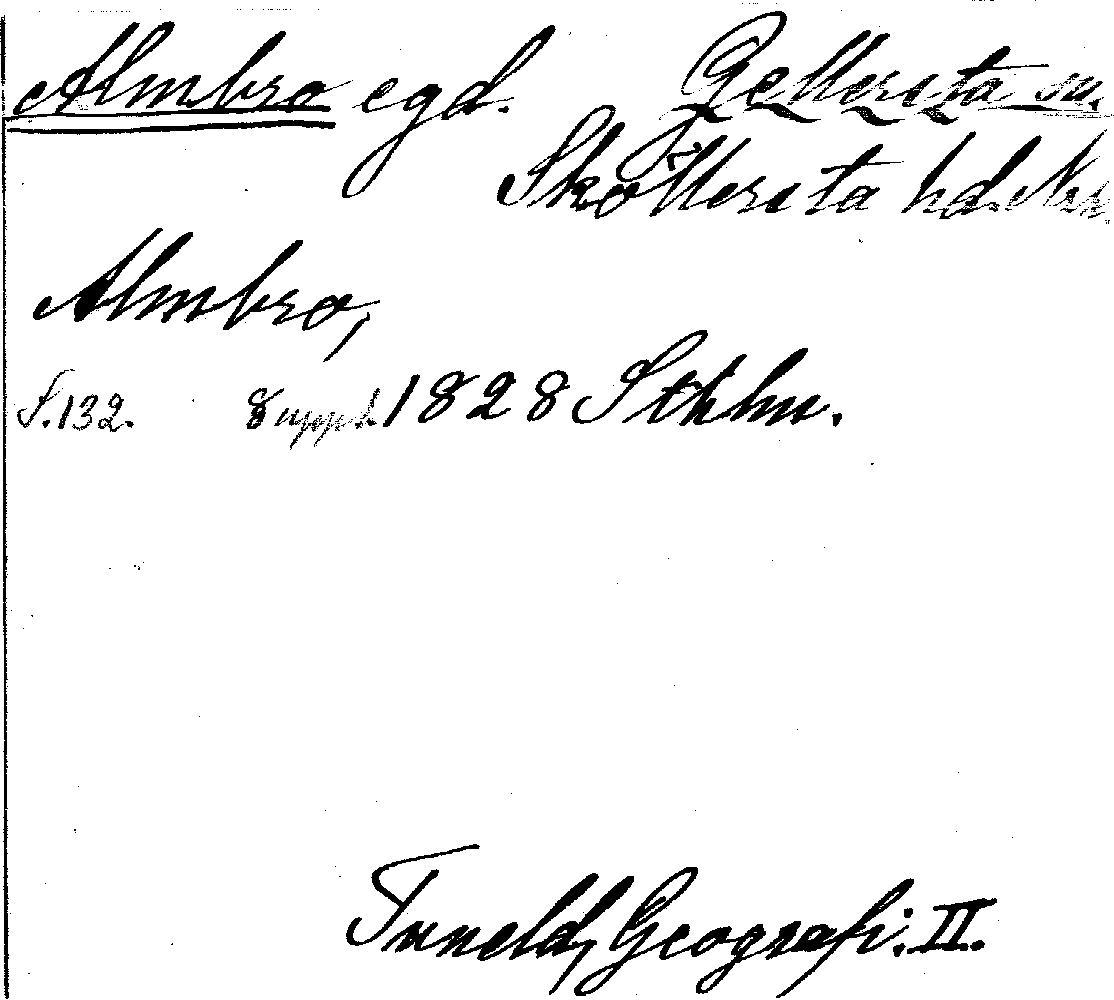 Almbro egd. Gellersta sn.
Sköllersta hd. Nke
Almbro,
S. 132. 8 uppl. 1828 Sthlm.
Tuneld, Geografi. II.